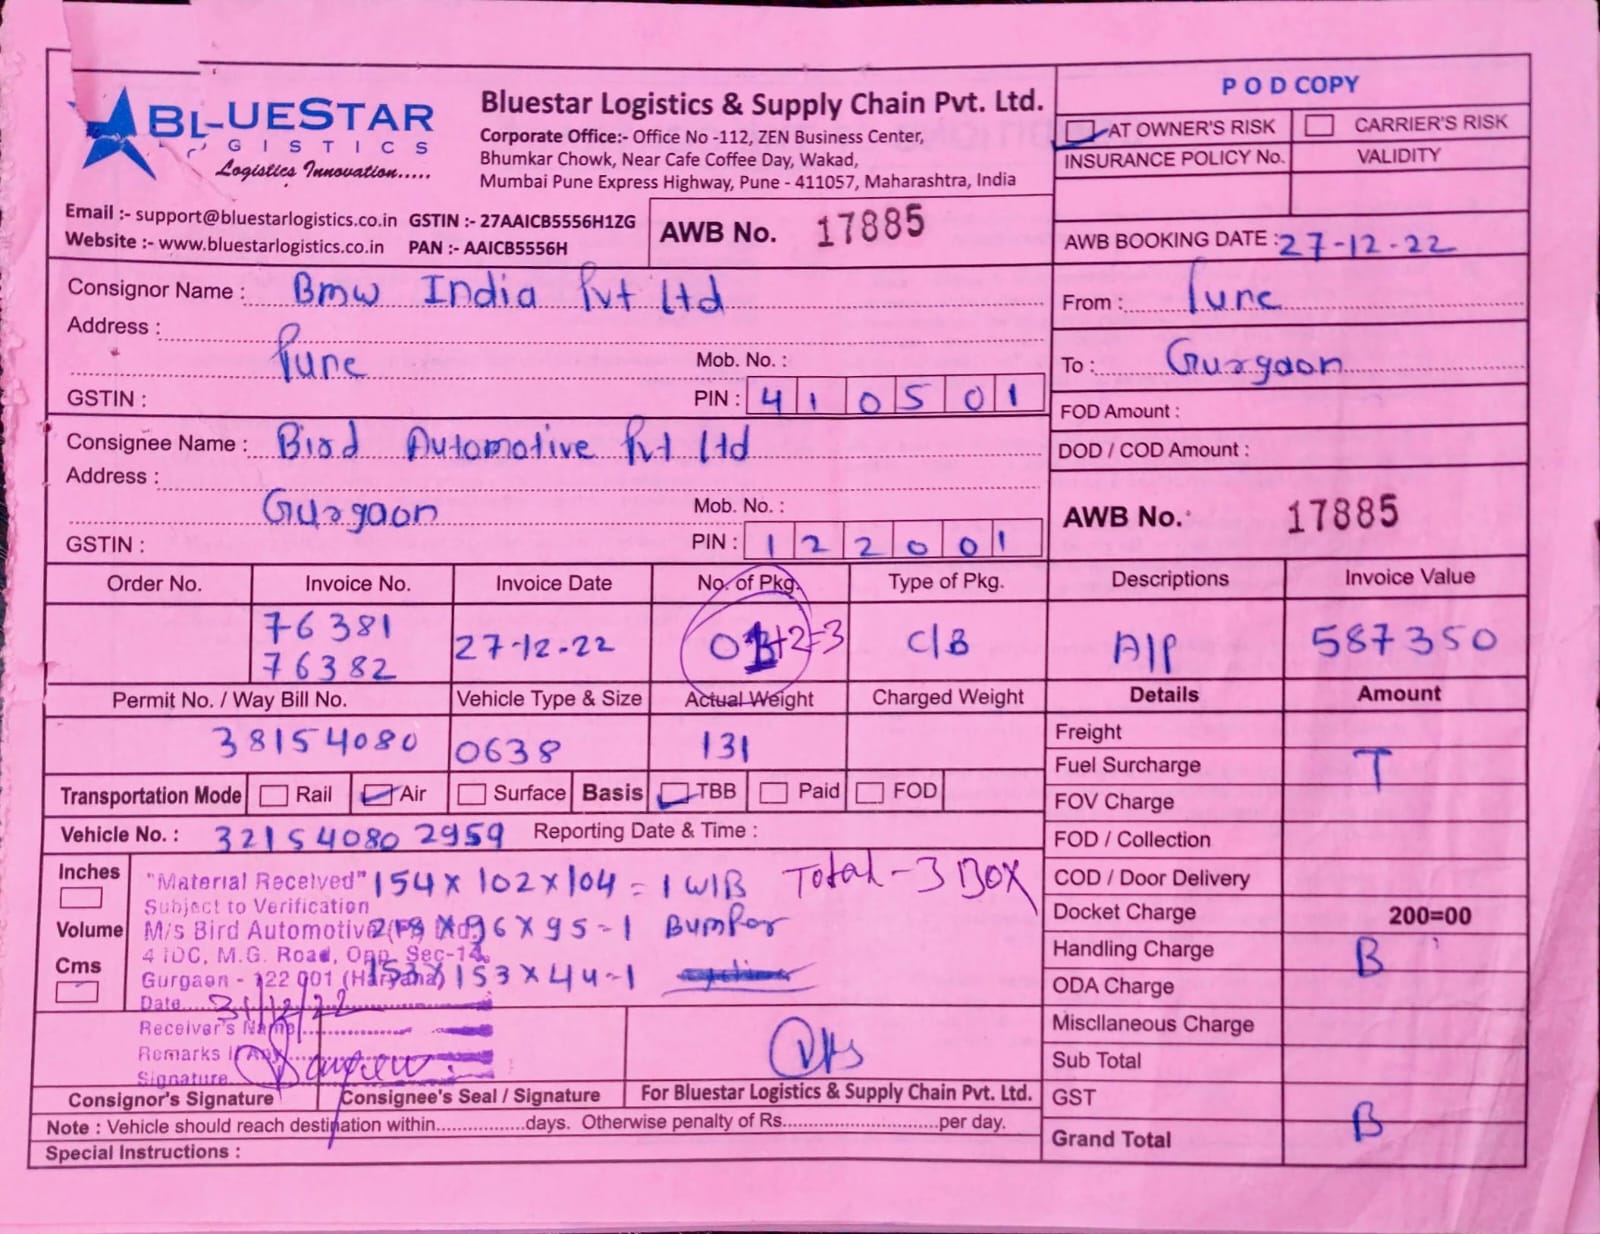 BLUESTAR
LOGISTICS
Logistics Innovation.....
Email :- support@bluestarlogistics.co.in GSTIN :- 27AAICB5556H1ZG
Website :- www.bluestarlogistics.co.in PAN :- AAICB5556H
Bluestar Logistics & Supply Chain Pvt. Ltd.
Corporate Office:- Office No -112, ZEN Business Center,
Bhumkar Chowk, Near Cafe Coffee Day, Wakad,
Mumbai Pune Express Highway, Pune - 411057, Maharashtra, India
AWB No. 17885
POD COPY
AT OWNER'S RISK CARRIER'S RISK
INSURANCE POLICY No. VALIDITY
AWB BOOKING DATE : 27-12-22
From : Pune
To : Gurgaon
FOD Amount :
DOD / COD Amount :
AWB No. 17885
Consignor Name : Bmw India Pvt Ltd
Address :
Pune Mob. No. :
GSTIN : PIN : 410501
Consignee Name : Bird Automotive Pvt Ltd
Address :
Gurgaon Mob. No. :
GSTIN : PIN : 122001
Order No. Invoice No. Invoice Date No. of Pkg. Type of Pkg. Descriptions Invoice Value
76381
76382 27-12-22 +2=3 C/B A/P 587350
Permit No. / Way Bill No. Vehicle Type & Size Actual Weight Charged Weight Details Amount
38154080 0638 131
Transportation Mode Rail Air Surface Basis TBB Paid FOD
Vehicle No. : 321540802959 Reporting Date & Time :
Freight
Fuel Surcharge T
FOV Charge
FOD / Collection
COD / Door Delivery
Docket Charge 200=00
Handling Charge B
ODA Charge
Miscllaneous Charge
Sub Total
GST
Grand Total B
Inches
Volume
Cms
"Material Received" 154 x 102 x 104 = 1 W/B Total - 3 Box
Subject to Verification
M/s Bird Automotive (P) Ltd. x 96 x 95 - 1 Bumper
4 IDC, M.G. Road, Opp. Sec-14,
Gurgaon - 122 001 (Haryana) 153 x 153 x 44 - 1
Date 31/12/22
Receiver's Name
Remarks If Any
Signature
Consignor's Signature Consignee's Seal / Signature For Bluestar Logistics & Supply Chain Pvt. Ltd.
Note : Vehicle should reach destination within................days. Otherwise penalty of Rs.............................per day.
Special Instructions :